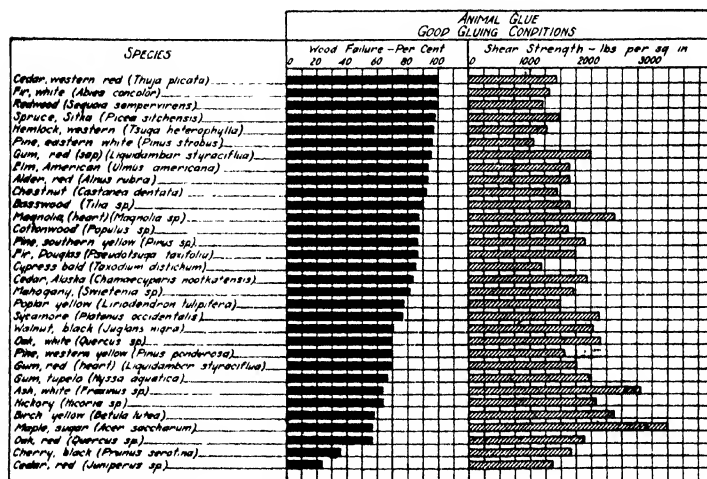 ANIMAL GLUE
GOOD GLUING CONDITIONS
SPECIES
Wood Failure - Per Cent
Shear Strength - lbs per sq in
0 20 40 60 80 100
0 1000 2000 3000
Cedar, western red (Thuja plicata)
Fir, white (Abies concolor)
Redwood (Sequoia sempervirens)
Spruce, Sitka (Picea sitchensis)
Hemlock, western (Tsuga heterophylla)
Pine, eastern white (Pinus strobus)
Gum, red (sap) (Liquidambar styraciflua)
Elm, American (Ulmus americana)
Alder, red (Alnus rubra)
Chestnut (Castanea dentata)
Basswood (Tilia sp)
Magnolia, (heart) (Magnolia sp)
Cottonwood (Populus sp)
Pine, southern yellow (Pinus sp)
Fir, Douglas (Pseudotsuga taxifolia)
Cypress bald (Taxodium distichum)
Cedar, Alaska (Chamaecyparis nootkatensis)
Mahogany, (Swietenia sp)
Poplar yellow (Liriodendron tulipifera)
Sycamore (Platanus occidentalis)
Walnut, black (Juglans nigra)
Oak, white (Quercus sp)
Pine, western yellow (Pinus ponderosa)
Gum, red (heart) (Liquidambar styraciflua)
Gum, tupelo (Nyssa aquatica)
Ash, white (Fraxinus sp)
Hickory (Hicoria sp)
Birch yellow (Betula lutea)
Maple, sugar (Acer saccharum)
Oak, red (Quercus sp)
Cherry, black (Prunus serotina)
Cedar, red (Juniperus sp)